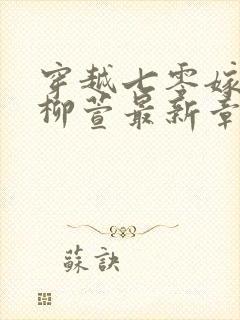 穿越七零嫁
柳萱最新章
蘇訣